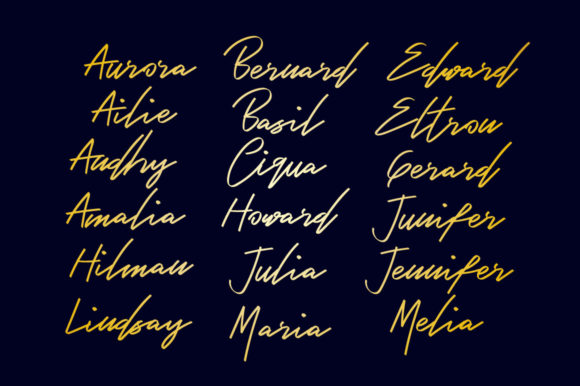 Aurora Bernard Edward
Ailie Basil Eltron
Audhy Ciqua Gerard
Amalia Howard Junifer
Hilman Julia Jennifer
Lindsay Maria Melia